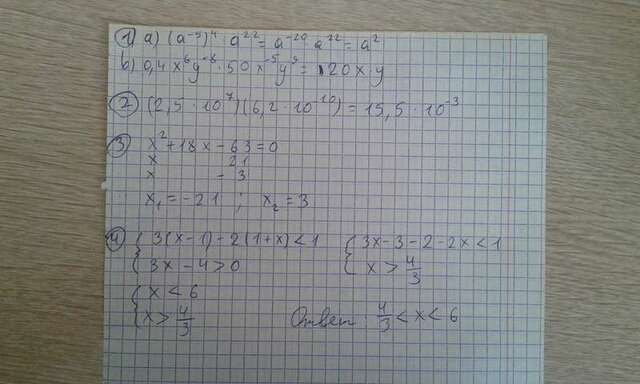 1) a) (a⁻⁵)⁴ · a²² = a⁻²⁰ a²² = a²
b) 0,4x⁶y⁻⁸ · 50x⁻⁵y⁹ = 20xy
2) (2,5 · 10⁷)(6,2 · 10⁻¹⁰) = 15,5 · 10⁻³
3) x² + 18x - 63 = 0
x 21
x - 3
x₁ = -21 ; x₂ = 3
4) { 3(x-1) - 2(1+x) < 1 { 3x - 3 - 2 - 2x < 1
{ 3x - 4 > 0 { x > 4/3
{ x < 6
{ x > 4/3 Ответ: 4/3 < x < 6